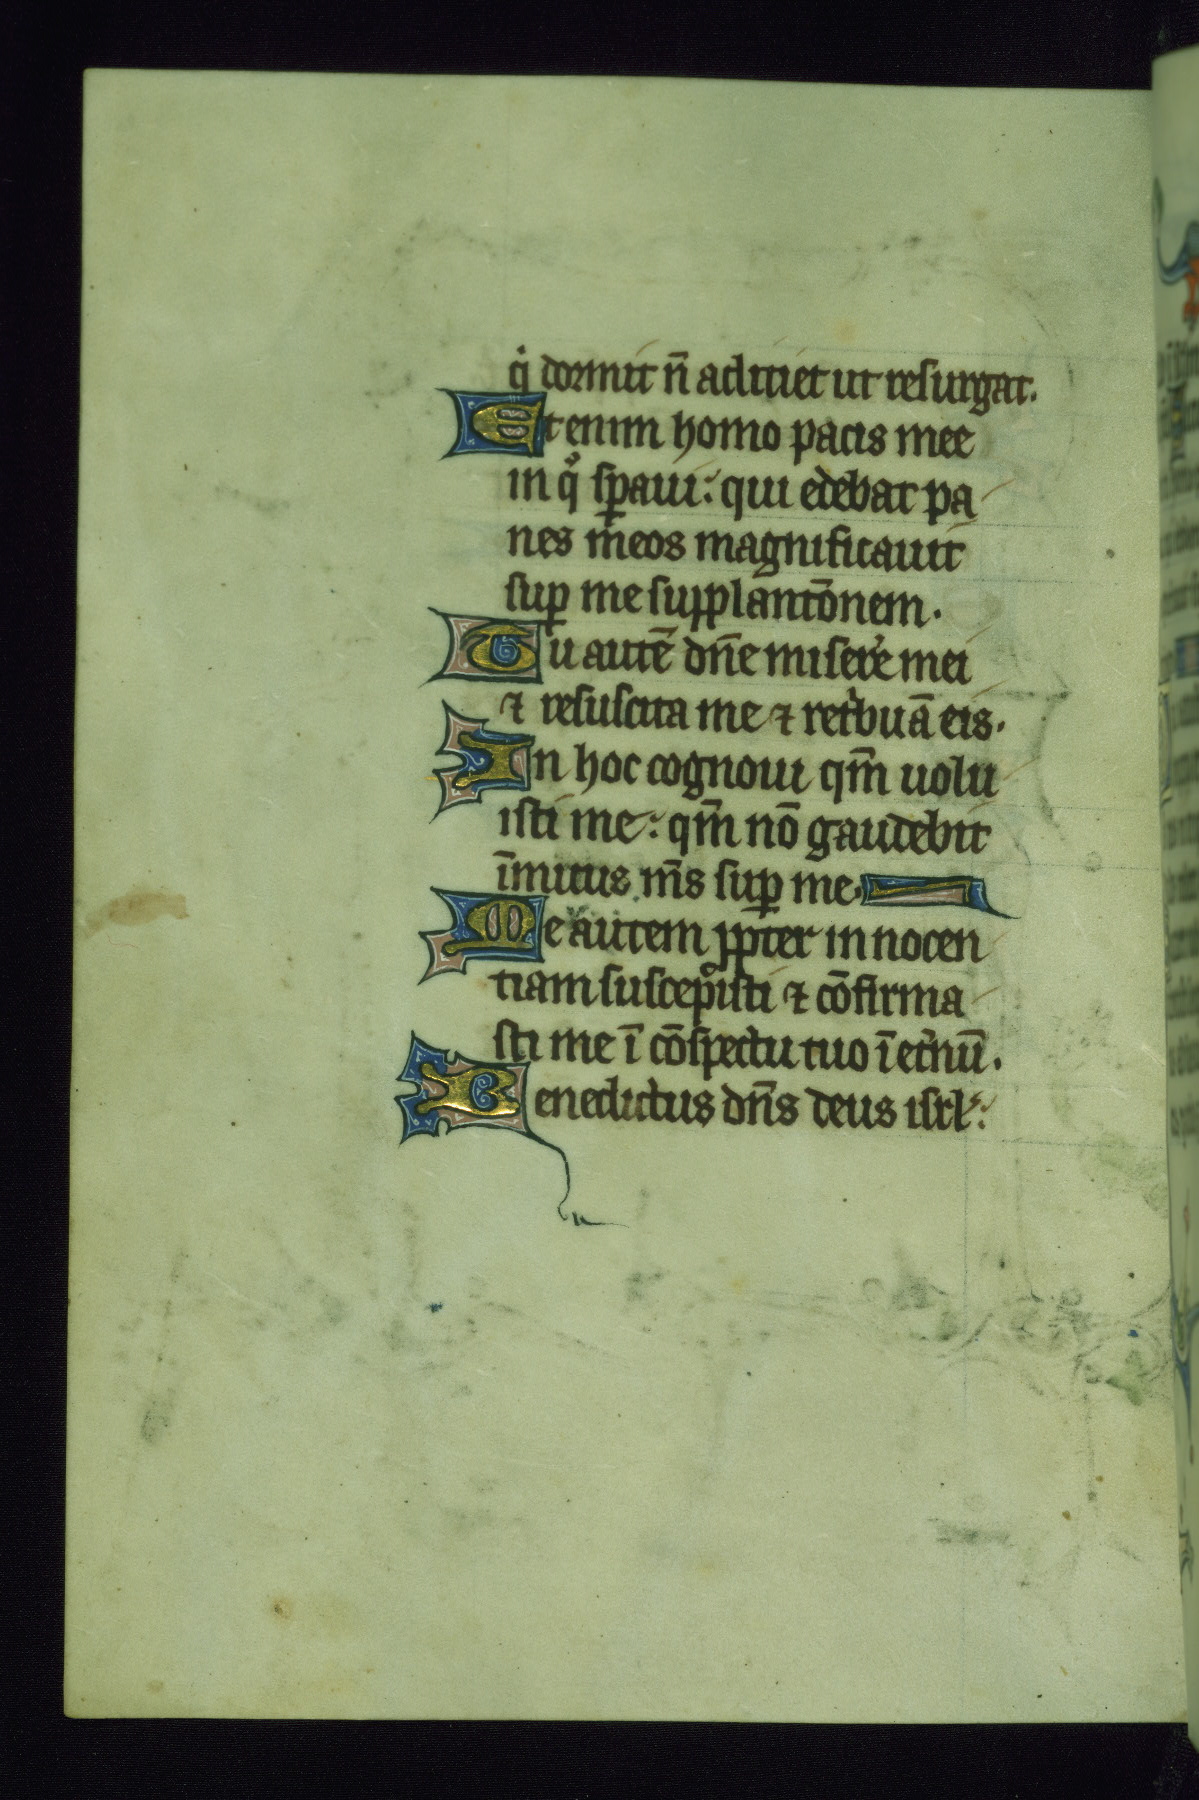 q̇ dormit n̄ adiciet ut resurgat.
Etenim homo pacis mee
in qͦ sꝑaui: qui edebat pa
nes meos magnificauit
suꝑ me supplantōnem.
Tu autē dn̄e miserere mei
⁊ resuscita me ⁊ ret̍buā eis.
In hoc cognoui qm̄ uolu
isti me: qm̄ nō gaudebit
īmicus m̄s suꝑ me.
Me autem ꝓpter innocen
tiam suscepisti ⁊ cōfirma
sti me ī cōspectu tuo ī et̍nū.
Benedictus dn̄s deus isrl: